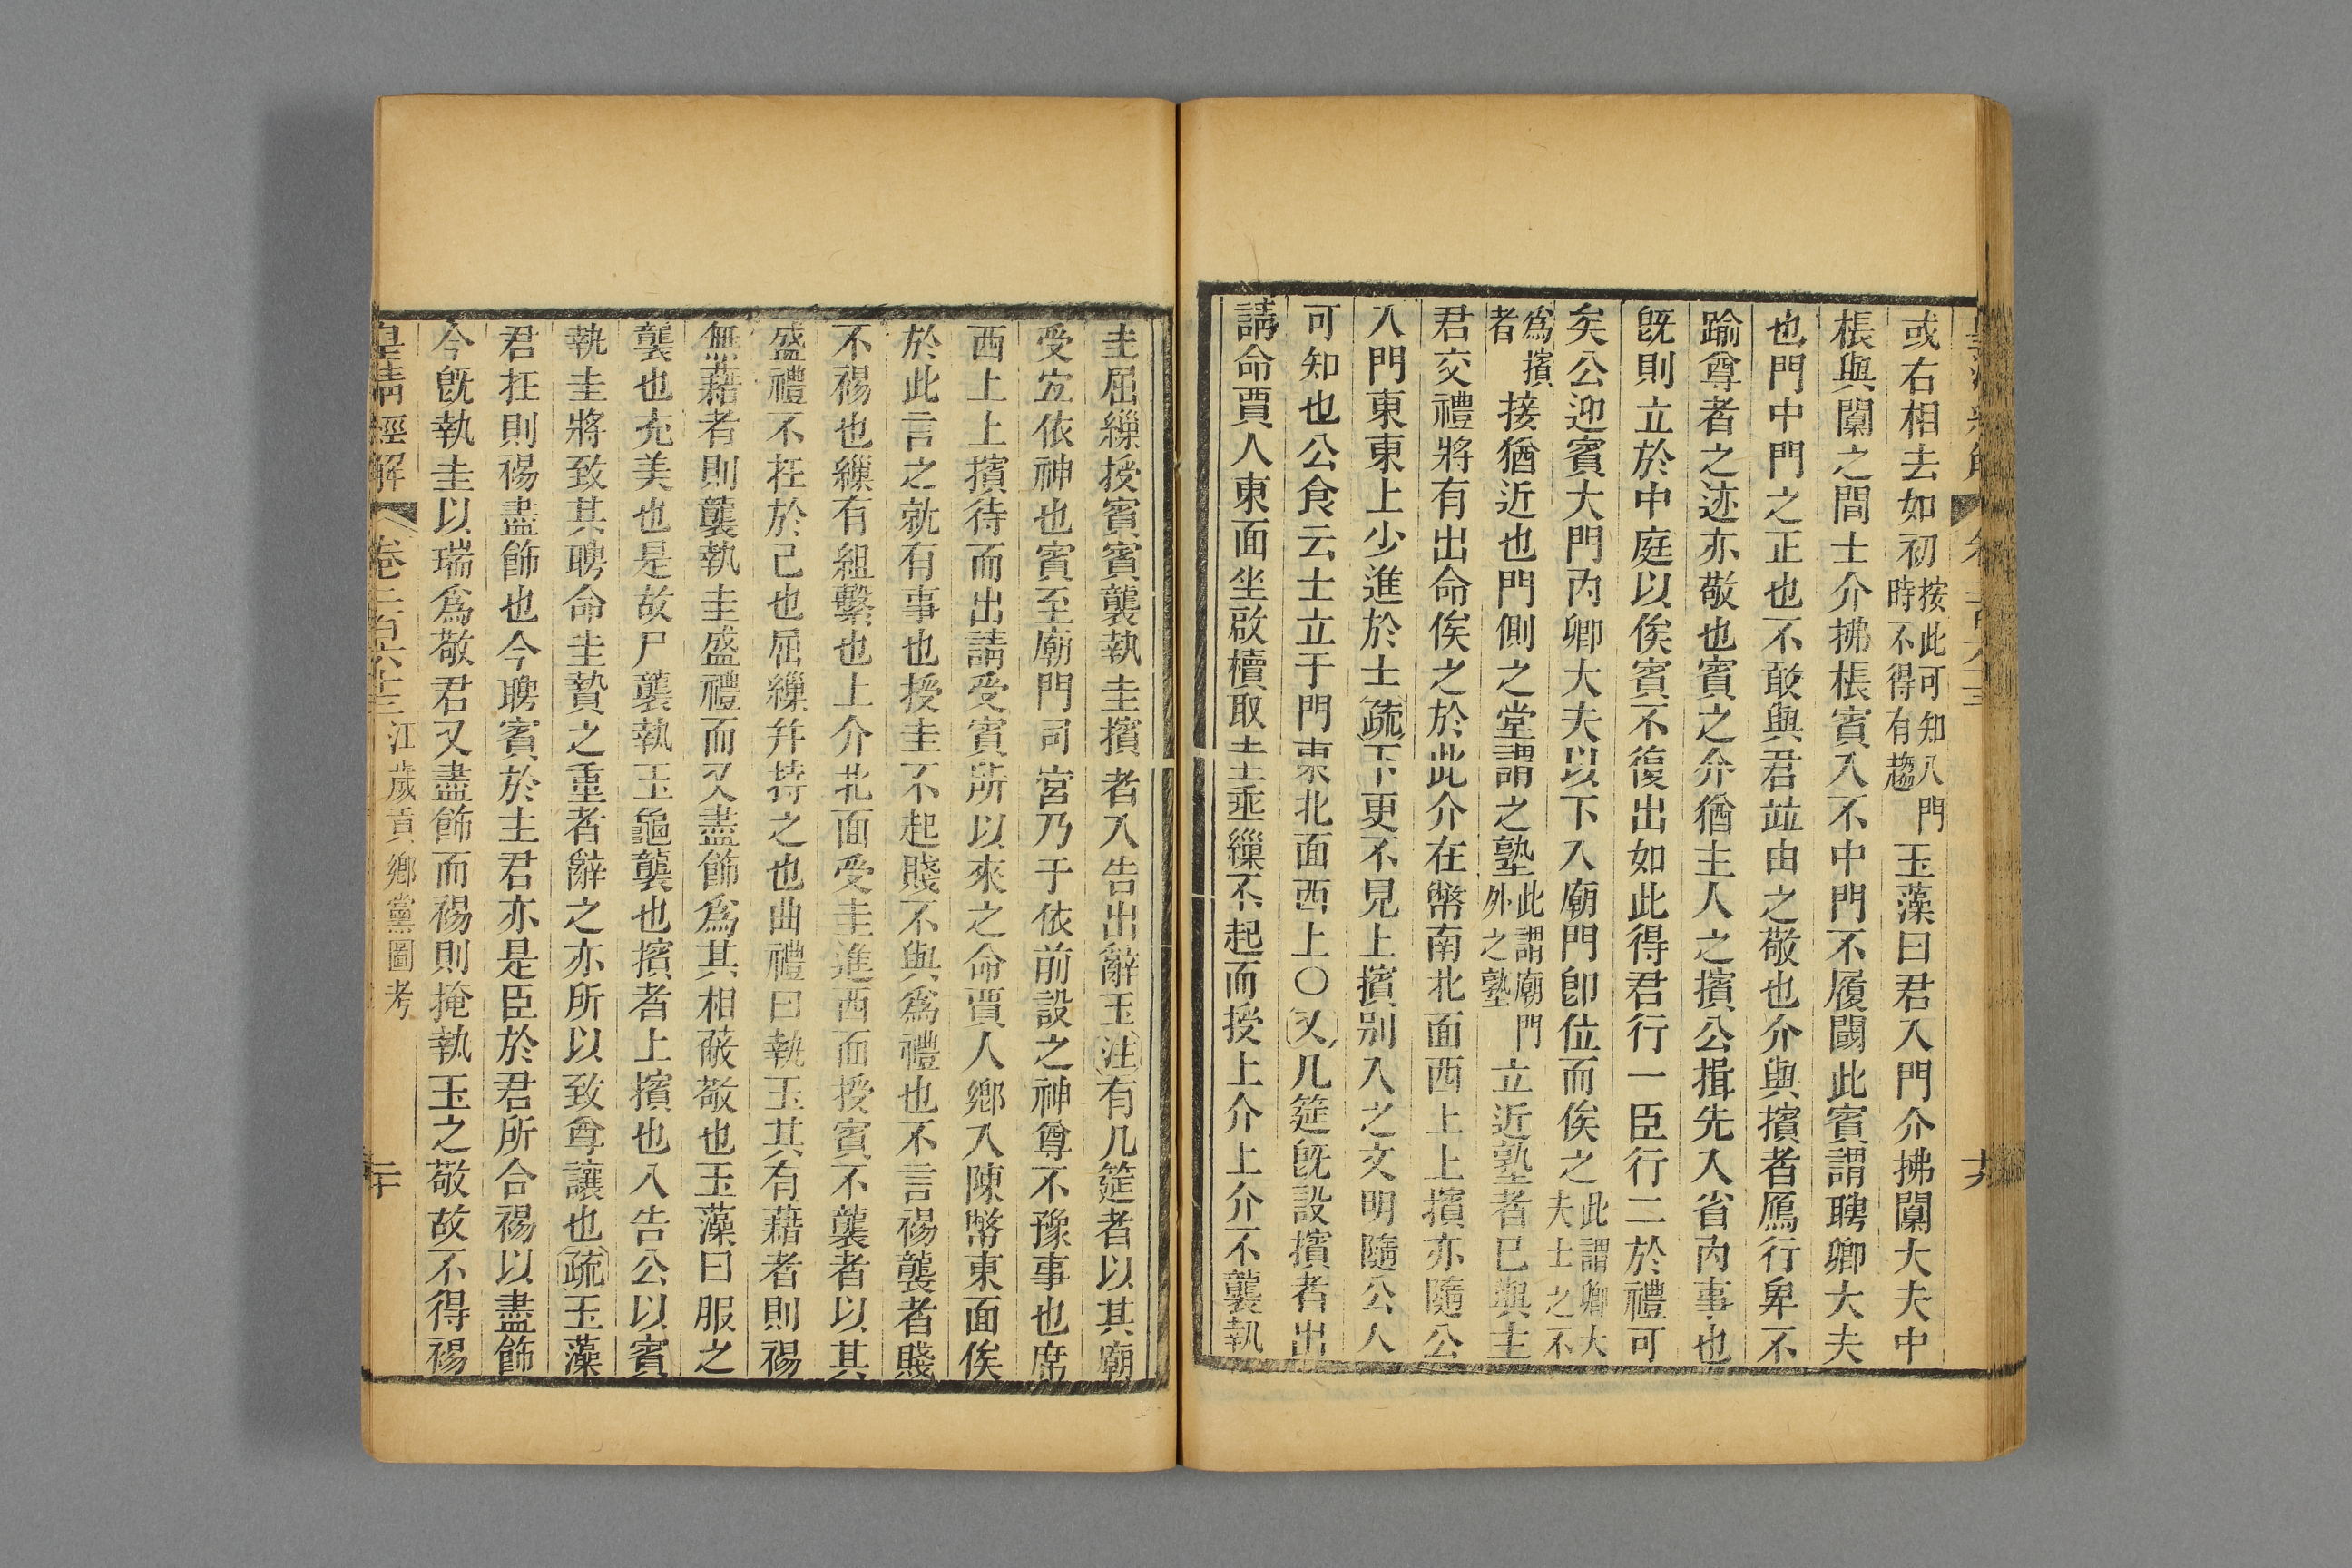 或右相去如初按此可知入門時不得有趨玉藻曰君入門介拂闑大夫中
棖與闑之間士介拂棖賓入不中門不履閾此賓謂聘卿大夫
也門中門之正也不敢與君竝由之敬也介與擯者鴈行卑不
踰尊者之迹亦敬也賓之介猶主人之擯公揖先入省內事也
旣則立於中庭以俟賓不復出如此得君行一臣行二於禮可
矣公迎賓大門內卿大夫以下入廟門卽位而俟之此謂卿大夫士之不
爲擯者接猶近也門側之堂謂之塾此謂廟門外之塾立近塾者已與主
君交禮將有出命俟之於此介在幣南北面西上上擯亦隨公
入門東東上少進於士疏下更不見上擯別入之文明隨公入
可知也公食云士立于門東北面西上〇又几筵旣設擯者出
請命賈人東面坐啟櫝取圭垂繅不起而授上介上介不襲執
圭屈繅授賓賓襲執圭擯者入告出辭玉注有几筵者以其廟
受宜依神也賓至廟門司宮乃于依前設之神尊不豫事也席
西上上擯待而出請受賓所以來之命賈人鄉入陳幣東面俟
於此言之就有事也授圭不起賤不與爲禮也不言裼襲者賤
不裼也繅有組繫也上介北面受圭進西面授賓不襲者以其
盛禮不在於己也屈繅幷持之也曲禮曰執玉其有藉者則裼
無藉者則襲執圭盛禮而又盡飾爲其相蔽敬也玉藻曰服之
襲也充美也是故尸襲執玉龜襲也擯者上擯也入告公以賓
執圭將致其聘命圭贄之重者辭之亦所以致尊讓也疏玉藻
君在則裼盡飾也今聘賓於主君亦是臣於君所合裼以盡飾
今旣執圭以瑞爲敬君又盡飾而裼則掩執玉之敬故不得裼
皇淸經解 卷二百六十三 江歲貢鄉黨圖考 二十